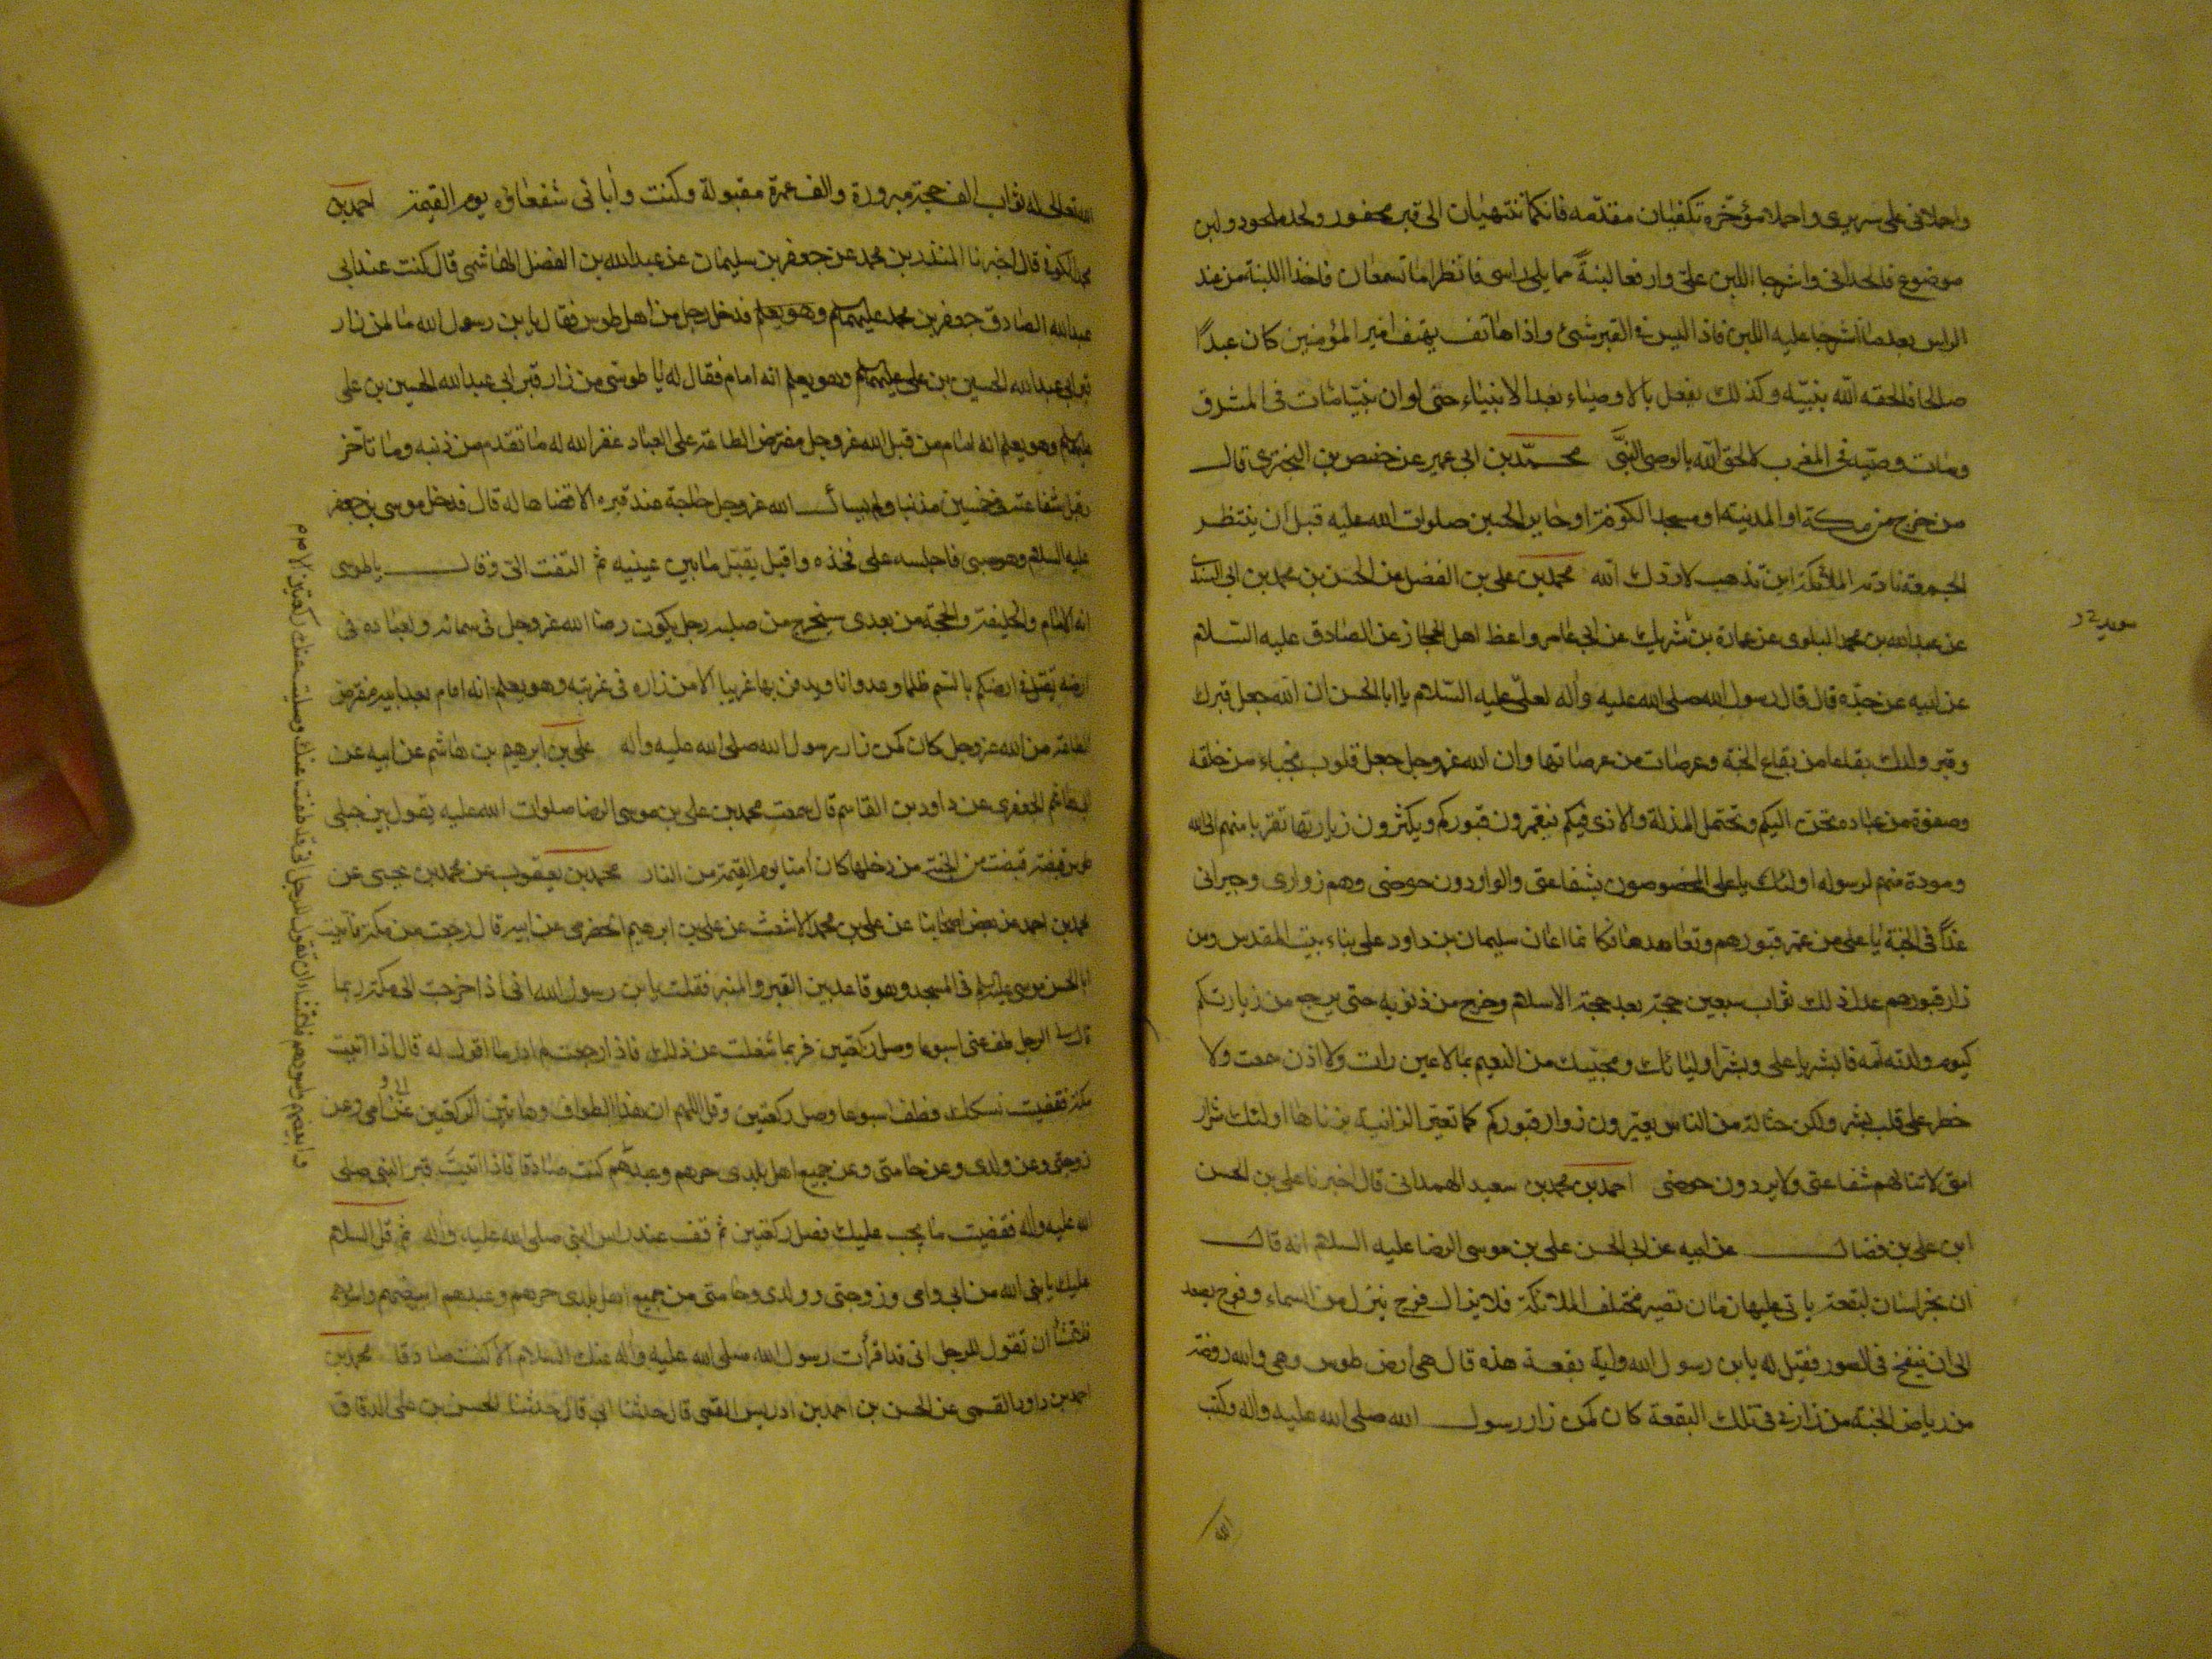 واحلانى على سريرى واحملا مؤخره تكفيان مقدمه فانكما تنتهيان الى قبر محفور ولحد ملحود ولبن
موضوع فالحدانى واشرجا اللبن علىّ وارفعا لبنةً مما يلى راسى فانظرا ما تسمعان فاخذا اللبنة من عند
الراس بعد ما اشرجا عليه اللبن فاذا ليس فى القبر شئ واذا هاتف يهتف امير المؤمنين كان عبدًا
صالحا فالحقه الله بنبيّه وكذلك يفعل بالاوصياء بعد الانبياء حتى لو ان نبيّا مات فى المشرق
ومات وصيّه فى المغرب لالحق الله بالوصى النبىَّ محمّد بن ابى عمير عن حفص بن البخترى قال
من خرج من مكة او المدينة او مسجد الكوفة او حاير الحسين صلوات الله عليه قبل ان ينتظر
الجمعة نادته الملائكة اين تذهب لا ردك الله محمد بن على بن الفضل عن الحسن بن محمد بن ابى السرى
عن عبد الله بن محمد البلوى عن عمارة بن شريك عن ابى عامر واعظ اهل الحجاز عن الصادق عليه السّلام
عن ابيه عن جدّه قال قال رسول الله صلى الله عليه وآله لعلىّ عليه السّلام يا ابا الحسن ان الله جعل قبرك
وقبر ولدك بقاعا من بقاع الجنة وعرصات من عرصاتها وان الله عز وجل جعل قلوب نجباء من خلقه
وصفوة من عباده تحن اليكم وتحتمل المذلة والاذى فيكم فيعمرون قبوركم ويكثرون زيارتها تقربا منهم الى الله
ومودة منهم لرسوله اولئك يا على المخصوصون بشفاعتى والواردون حوضى وهم زوارى وجيرانى
غداً فى الجنة يا على من عمر قبورهم وتعاهدها فكانما اعان سليمان بن داود على بناء بيت المقدس ومن
زار قبورهم عدل ذلك ثواب سبعين حجة بعد حجة الاسلام وخرج من ذنوبه حتى يرجع من زيارتكم
كيوم ولدته امه فابشر يا على وبشّر اوليائك ومحبيك من النعيم بما لا عين رات ولا اذن سمعت ولا
خطر على قلب بشر ولكن حثالة من الناس يعيّرون زوار قبوركم كما تعيّر الزانية بزناها اولئك شرار
امتى لا تنالهم شفاعتى ولا يردون حوضى احمد بن محمد بن سعيد الهمدانى قال اخبرنا على بن الحسن
ابن على بن فضال عن ابيه عن ابى الحسن على بن موسى الرضا عليه السلام انه قال
ان بخراسان لبقعة ياتى عليها زمان تصير مختلف الملائكة فلا يزال فوج ينزل من السماء وفوج يصعد
الى ان ينفخ فى الصور فقيل له يا بن رسول الله واية بقعة هذه قال هى ارض طوس وهى والله روضة
من رياض الجنة من زارنى فى تلك البقعة كان كمن زار رسول الله صلى الله عليه وآله وكتب
الله
الله تعالى له ثواب الف حجة مبرورة والف عمرة مقبولة وكنت وآبائى شفعاؤه يوم القيمة احمد بن
محمد الكوفى قال اخبرنا المنذر بن محمد عن جعفر بن سليمان عن عبد الله بن الفضل الهاشمى قال كنت عند ابى
عبد الله الصادق جعفر بن محمد عليهما السلم فدخل رجل من اهل طوس فقال يا بن رسول الله ما لمن زار
قبر ابى عبد الله الحسين بن على عليهما السلم وهو يعلم انه امام فقال له يا طوسى من زار قبر ابى عبد الله الحسين بن على
عليه السلم وهو يعلم انه امام من قبل الله عز وجل مفترض الطاعة على العباد غفر الله له ما تقدم من ذنبه وما تاخر
وقبل شفاعته فى خمسين مذنبا ولم يسأل الله عز وجل حاجة عند قبره الا قضاها له قال فدخل موسى بن جعفر
عليه السلام وهو صبى فاجلسه على فخذه واقبل يقبّل ما بين عينيه ثم التفت الىّ وقال يا طوسى
انه الامام والخليفة والحجة من بعدى سيخرج من صلبه رجل يكون رضا الله عز وجل فى سمائه ولعباده فى
ارضه يقتل فى ارضكم بالسّم ظلما وعدوانا ويدفن بها غريبا الا من زاره فى غربته وهو يعلم انه امام بعد ابيه مفترض
الطاعة من الله عز وجل كان كمن زار رسول الله صلى الله عليه وآله على بن ابرهيم بن هاشم عن ابيه عن
ابى هاشم الجعفرى عن داود بن القاسم قال سمعت محمد بن على بن موسى الرضا صلوات الله عليه يقول بين جبلى
طوس قبضة قبضت من الجنة من دخلها كان آمنا يوم القيمة من النار محمد بن يعقوب عن محمد بن يحيى عن
محمد بن احمد عن بعض اصحابنا عن على بن محمد الاشعث عن على بن ابرهيم الحضرمى عن ابيه قال رجعت من مكة فاتيت
ابا الحسن موسى عليه السلم فى المسجد وهو قاعد بين القبر والمنبر فقلت يا بن رسول الله انى اذا خرجت الى مكة ربما
قال لى الرجل طف عنى اسبوعا وصل ركعتين فربما شغلت عن ذلك فاذا رجعت لم ادر ما اقول له قال اذا اتيت
مكة فقضيت نسكك فطف اسبوعا وصل ركعتين وقل اللهم ان هذا الطواف وهاتين الركعتين عن ابى وامى وعن
زوجتى وعن ولدى وعن حامتى وعن جميع اهل بلدى حرهم وعبدهم كنت صادقا فاذا اتيتَ قبر النبى صلى
الله عليه وآله فقضيت ما يجب عليك فصل ركعتين ثم قف عند راس النبى صلى الله عليه وآله ثم قل السلام
عليك يا نبى الله من ابى وامى وزوجتى وولدى وحامتى من جميع اهل بلدى حرهم وعبدهم ابيضهم واسودهم
فلا تشاء ان تقول للرجل انى قد اقرأت رسول الله صلى الله عليه وآله عنك السلام الا كنت صادقا محمد بن
احمد بن داود القمى عن الحسن بن احمد بن ادريس القمى قال حدثنا ابى قال حدثنا الحسن بن على الدقاق
وابيضهم واسودهم فلا تشاء ان تقول للرجل انى قد طفت عنك وصليت عنك ركعتين الا